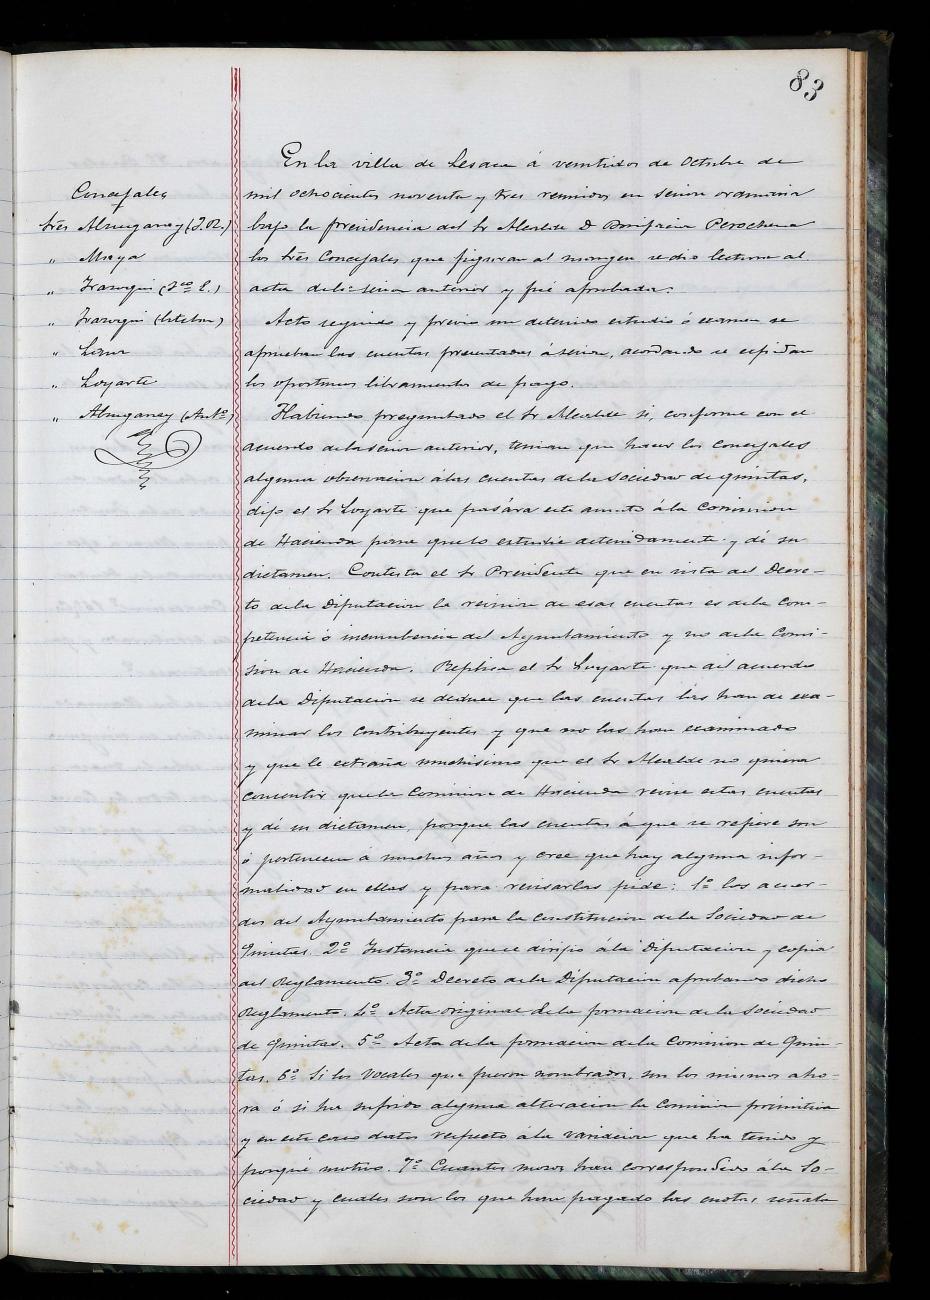 83
Concejales
Sres Almugaray (J.R.)
" Maya
" Irasoqui (Fco L.)
" Irasoqui (Esteban)
" Lizur
" Loyarte
" Almugaray (Anto)
En la villa de Lesaca á veintidos de Octubre de
mil ochocientos noventa y tres reunidos en sesion ordinaria
bajo la presidencia del Sr Alcalde D Bonifacio Perochena
los Sres Concejales que figuran al margen se dió lectura al
acta de la sesion anterior y fué aprobada.
Acto seguido y previo un detenido estudio ó examen se
aprueban las cuentas presentadas á sesion, acordando se espidan
los oportunos libramientos de pago.
Habiendo preguntado el Sr Alcalde si, conforme con el
acuerdo de la sesion anterior, tenian que hacer los Concejales
alguna observacion á las cuentas de la Sociedad de quintas,
dijo el Sr Loyarte que pasára este asunto á la Comision
de Hacienda para que lo estudie detenidamente y dé su
dictamen. Contesta el Sr Presidente que en vista del Decre-
to de la Diputacion la revision de esas cuentas es de la com-
petencia ó incumbencia del Ayuntamiento y no de la Comi-
sion de Hacienda. Replica el Sr Loyarte que del acuerdo
de la Diputacion se deduce que las cuentas las han de exa-
minar los Contribuyentes y que no las han examinado
y que le estraña muchisimo que el Sr Alcalde no quiera
consentir que la Comision de Hacienda revise estas cuentas
y dé su dictamen, porque las cuentas á que se refiere son
ó pertenecen á muchos años y cree que hay alguna infor-
malidad en ellas y para revisarlas pide: 1º los acuer-
dos del Ayuntamiento para la constitucion de la Sociedad de
Quintas. 2º Instancia que se dirijió á la Diputacion y copia
del Reglamento. 3º Decreto de la Diputacion aprobando dicho
Reglamento. 4º Acta original de la formacion de la Sociedad
de Quintas. 5º Acta de la formacion de la Comision de Quin-
tas. 6º Si los Vocales que fueron nombrados, son los mismos aho-
ra ó si ha sufrido alguna alteracion la Comision primitiva
y en este caso datos respecto á la variacion que ha tenido y
porqué motivo. 7º Cuantos mozos han correspondido á la So-
ciedad y cuales son los que han pagado las cuotas, señala